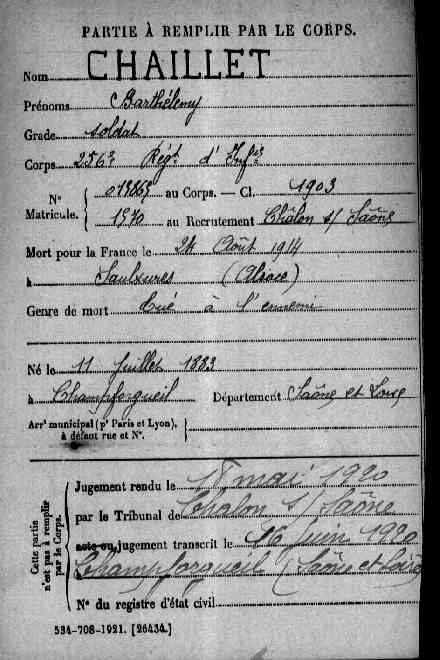 PARTIE À REMPLIR PAR LE CORPS.
Nom CHAILLET
Prénoms Barthélemy
Grade soldat
Corps 256e Régt d'Infie
N° Matricule. { au Corps. — Cl. 1903
1570 au Recrutement Châlon s/ Saône
Mort pour la France le 24 Août 1914
à Saulxures (Alsace)
Genre de mort tué à l'ennemi
Né le 11 Juillet 1883
à Champforgueil Département Saône et Loire
Arrt municipal (pr Paris et Lyon), à défaut rue et N°. }
Cette partie n'est pas à remplir par le Corps.
Jugement rendu le 18 mai 1920
par le Tribunal de Chalon s/ Saône
acte ou jugement transcrit le 16 Juin 1920
Champforgueil (Saône et Loire
N° du registre d'état civil
534-708-1921. [26434.]